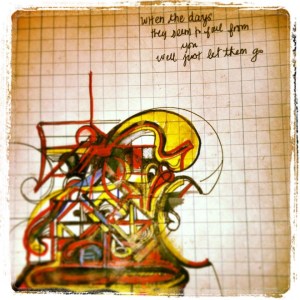 When the days
they seem to fall from
you
well just let them go